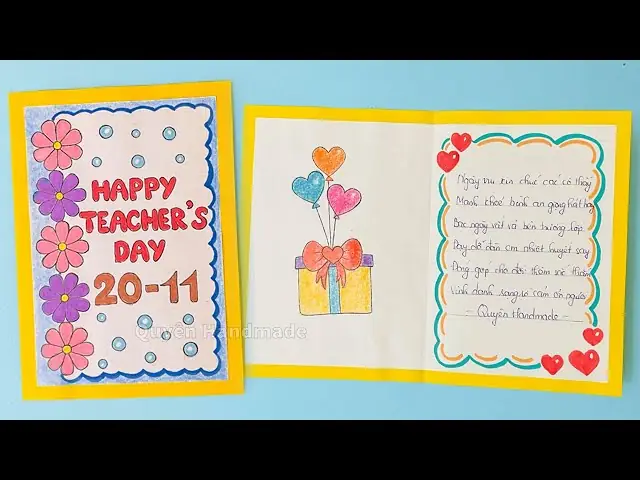 HAPPY
TEACHER'S
DAY
20-11
Quyên Handmade
Ngày vui xin chúc các cô thầy
Mạnh khoẻ bình an giọng hát hay
Bao ngày vất vả bên trường lớp
Dạy dỗ đàn em nhiệt huyết say
Đóng góp cho đời thêm
Vinh danh sáng
- Quyên Handmade -